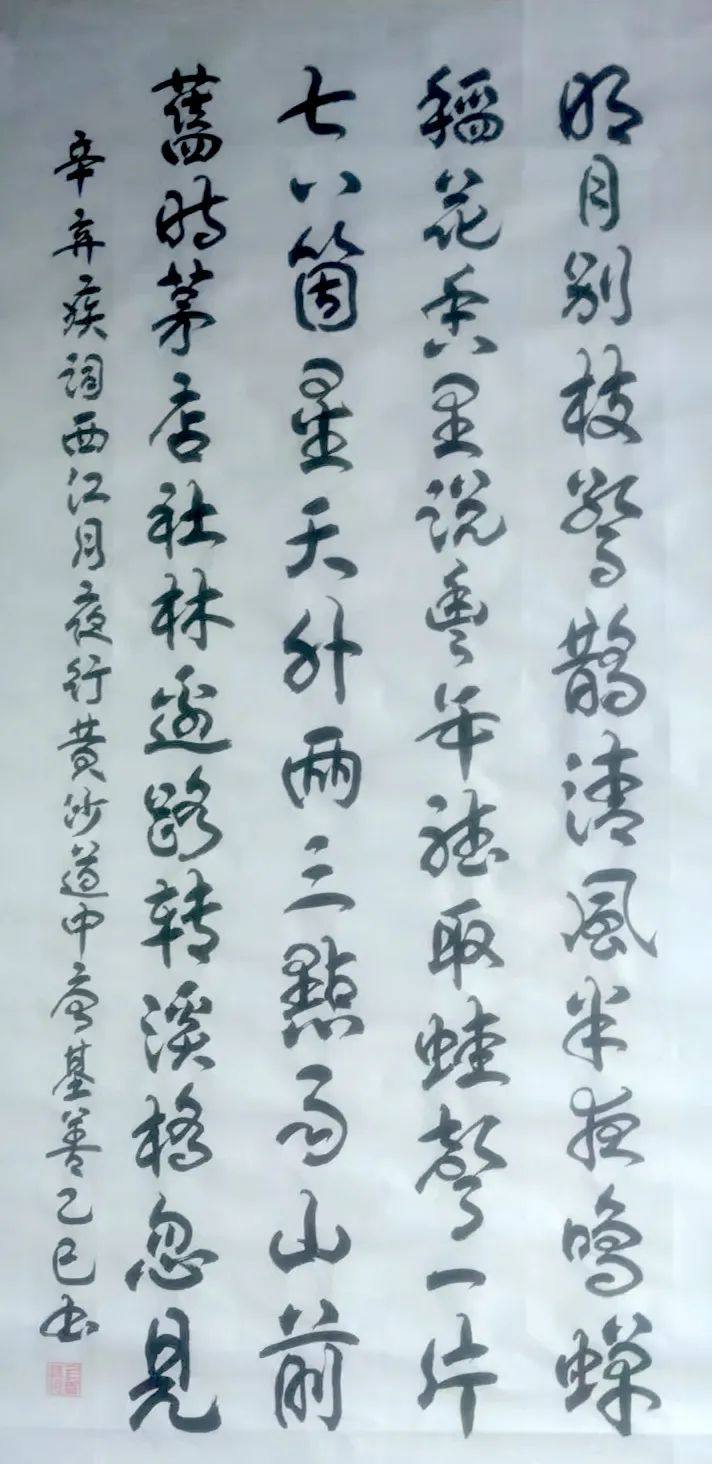 明月别枝驚鵲清風半夜鳴蟬
稻花香里説豐年聽取蛙聲一片
七八箇星天外兩三點雨山前
舊時茅店社林邊路轉溪橋忽見
辛弃疾詞西江月夜行黄沙道中 基善乙巳书